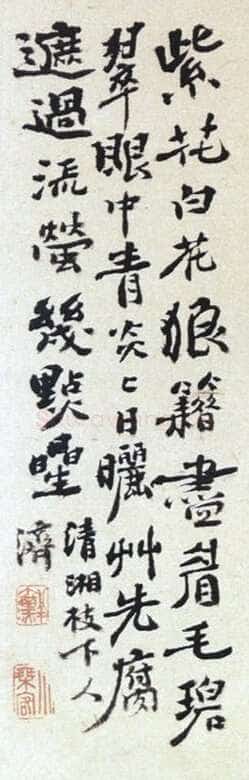 紫花白花狼籍盡眉毛碧
翠眼中青炎々日曬艸先腐
遮過流螢幾點星
清湘枝下人
濟